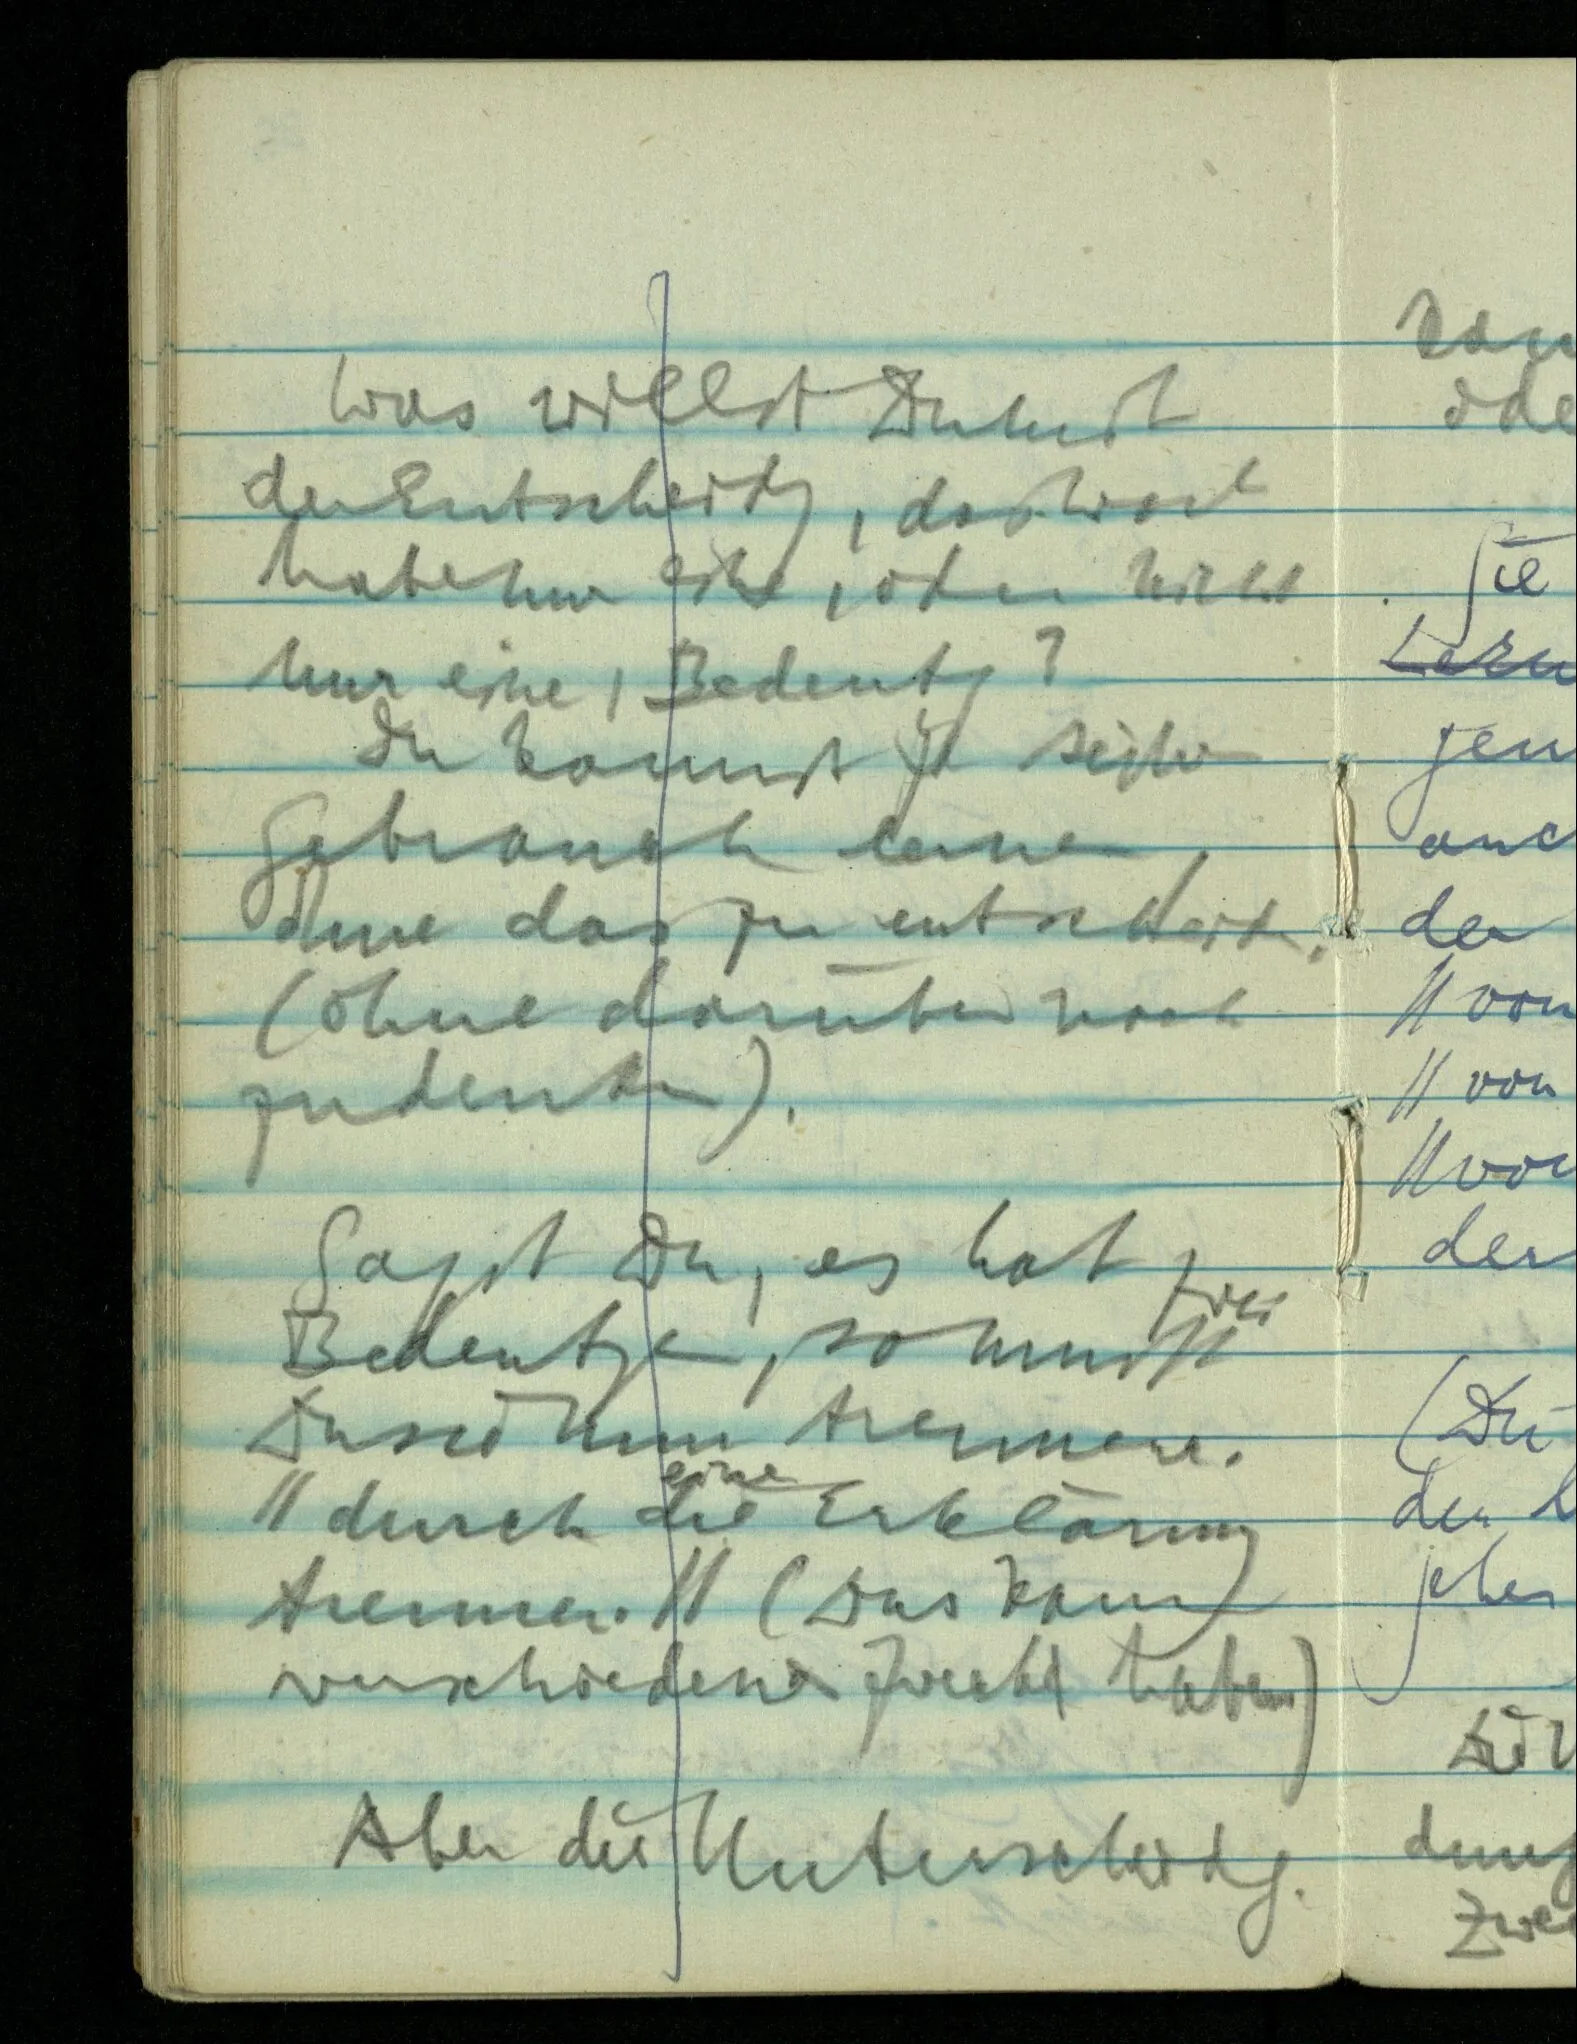 Was willst Du mit
der Entscheidg, das Wort
habe nur eine, oder nicht
nur eine, Bedeutg?
Du kannst ja seinen
Gebrauch lernen,
ohne das zu entscheiden.
(ohne darüber nach
zudenken).
Sagst Du, es hat zwei
Bedeutgen, so mußt
Du sie nun trennen.
// durch die eine Erklärung
trennen. // (Das kann
verschiedene Zwecke haben)
Aber die Unterscheidg.
kan
ode
Sie
Lern
jen
auc
der
// von
// von
// von
der
(Die
den
jeher
Die
dung
Zwe